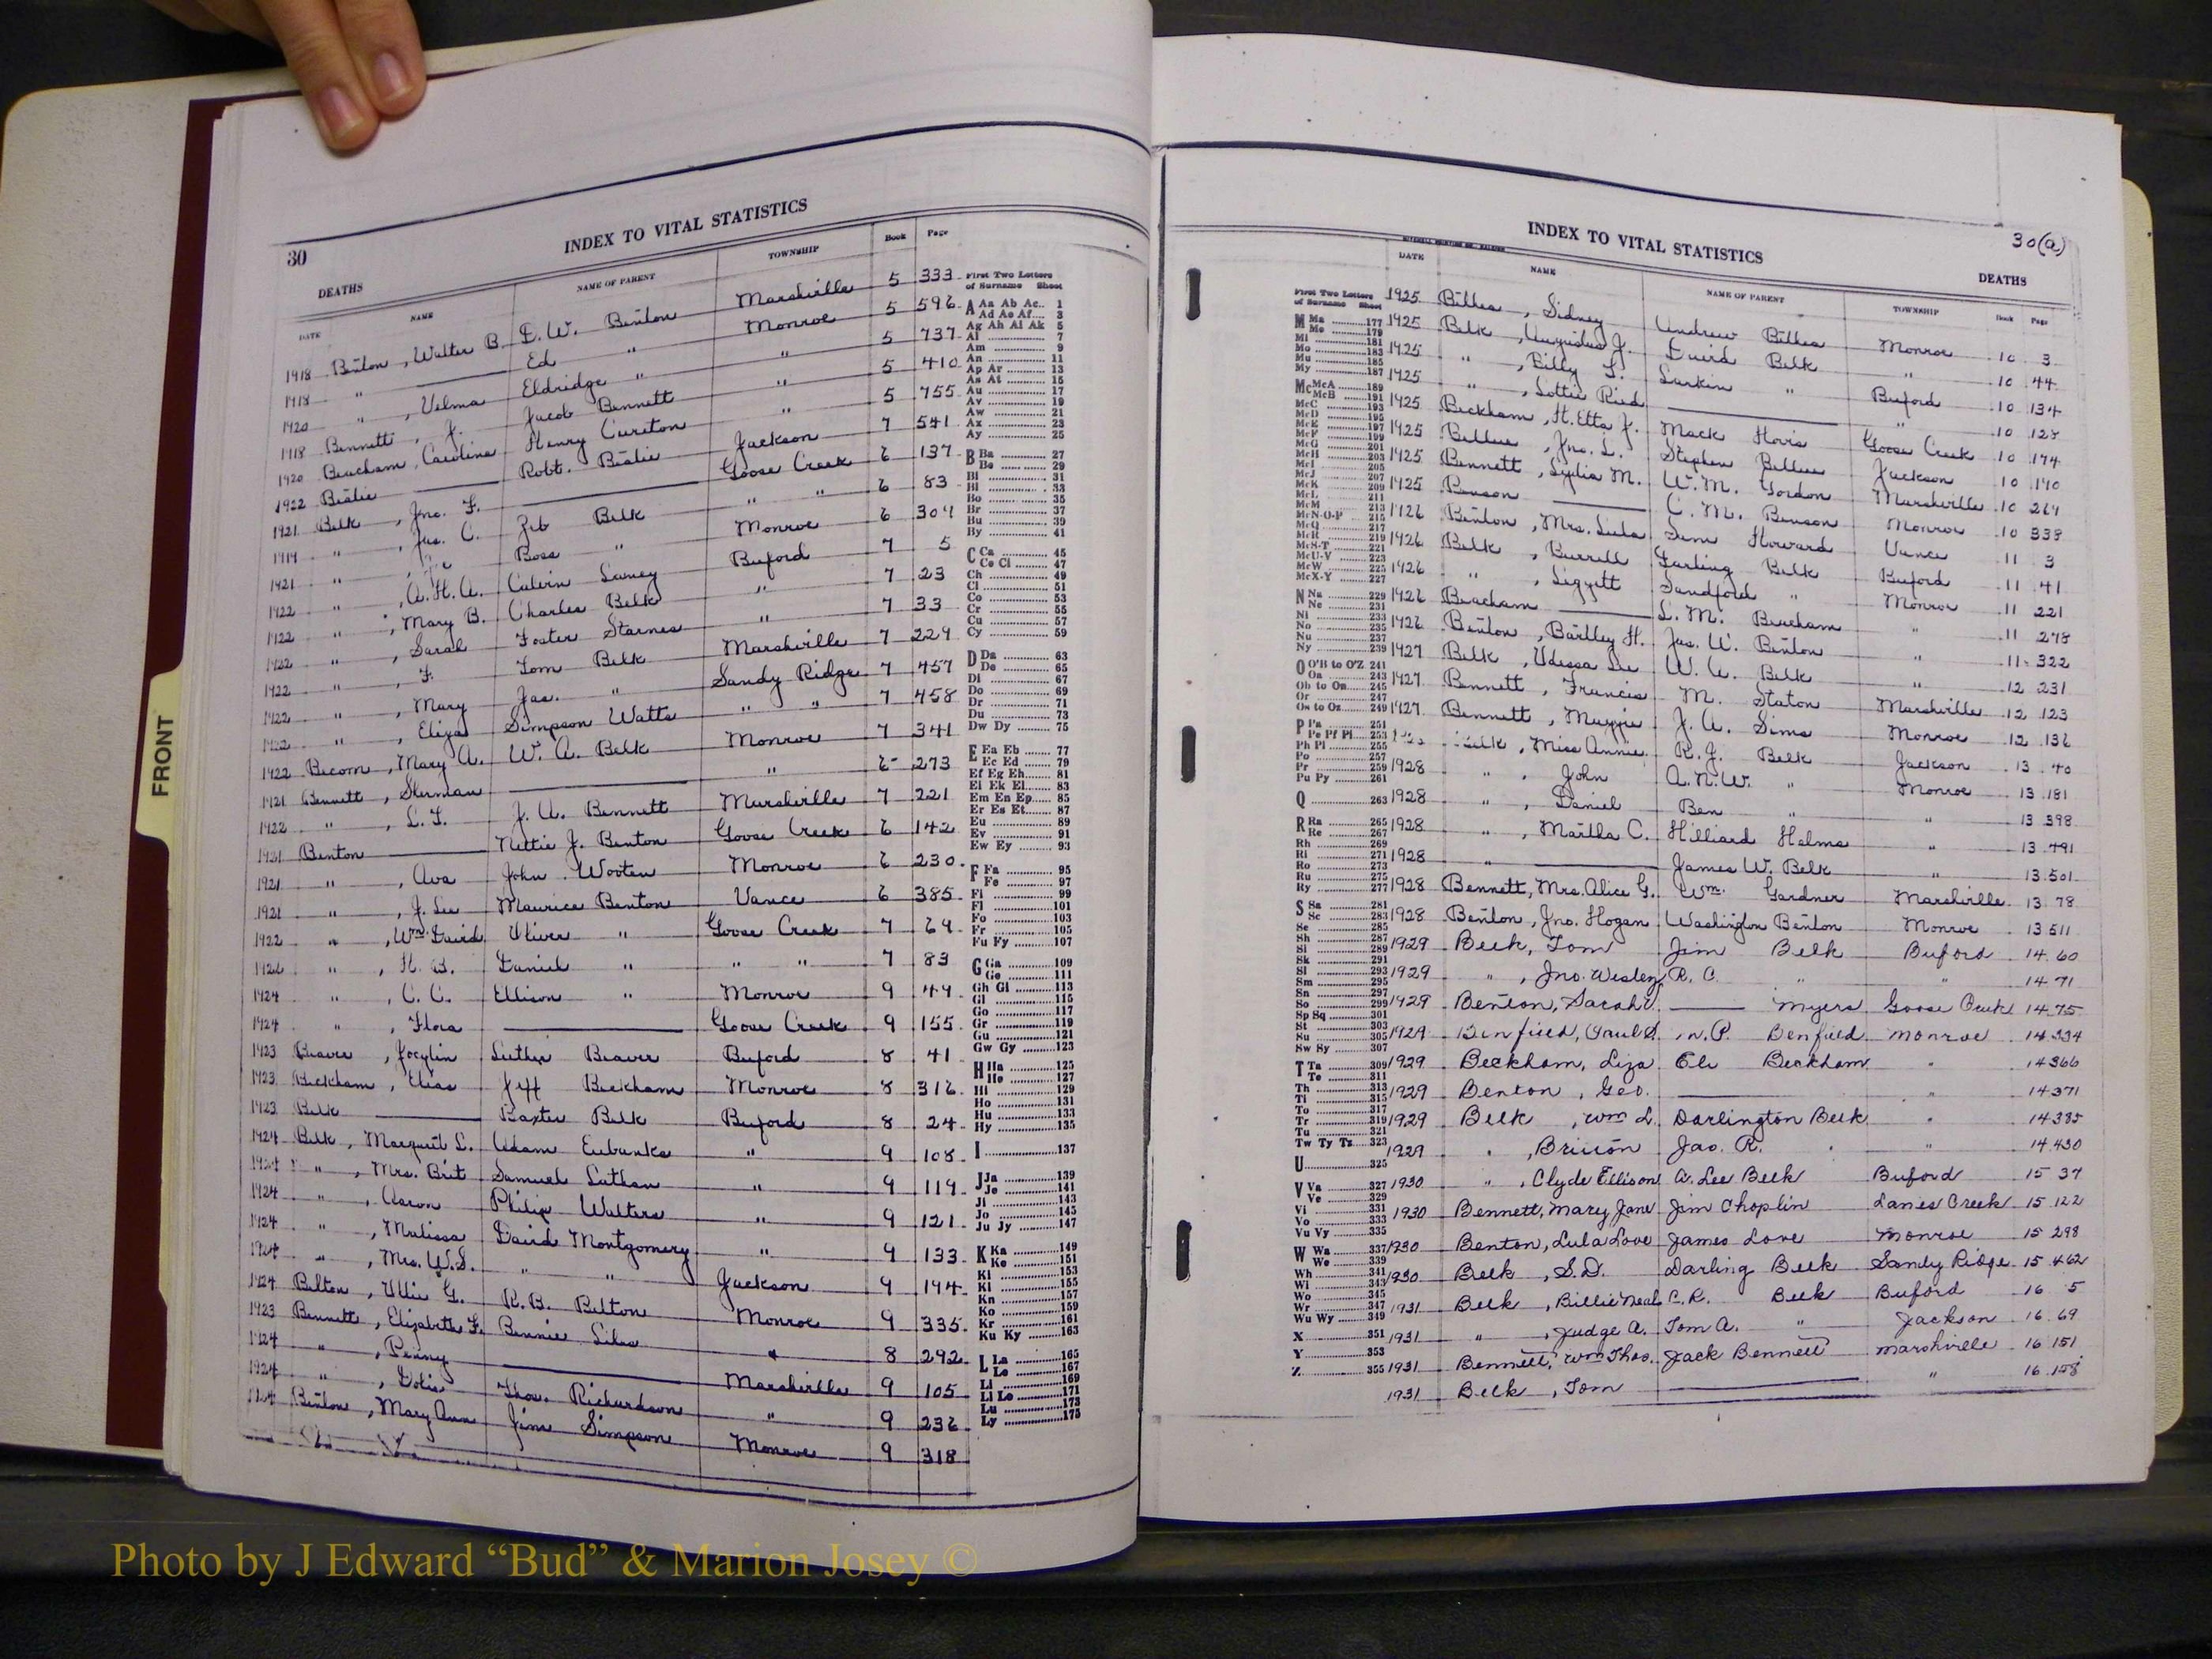 30
INDEX TO VITAL STATISTICS
DEATHS
DATE NAME NAME OF PARENT TOWNSHIP Book Page
1918 Benton, Walter B. E. W. Benton Marshville 5 333
1918 " —— Ed " Monroe 5 596
1920 " , Velma Eldridge " " 5 737
1918 Bennett, J. Jacob Bennett " 5 410
1920 Beacham, Caroline Henry Cureton " 5 755
1922 Beslie —— Robt. Beslie Jackson 7 541
1921 Belk, Jno. F. —— Goose Creek 6 137
1919 " , Jas. C. Zeb Belk " " 6 83
1921 " , Ross " Monroe 6 304
1922 " , A. H. A. Calvin Laney Buford 7 5
1922 " , Mary B. Charles Belk " 7 23
1922 " , Sarah Foster Starnes " 7 33
1922 " , F. Tom Belk Marshville 7 229
1922 " , Mary Jas. " Sandy Ridge 7 457
1922 " , Eliza Simpson Watts " " 7 458
1922 Becom, Mary A. W. A. Belk Monroe 7 341
1921 Bennett, Sherman —— " 6 273
1922 " , L. F. J. A. Bennett Marshville 7 221
1921 Benton —— Nettie J. Benton Goose Creek 6 142
1921 " , Ava John Wooten Monroe 6 230
1921 " , J. Lee Maurice Benton Vance 6 385
1922 " , Wm. David Oliver " Goose Creek 7 69
1922 " , H. B. Daniel " " " 7 83
1924 " , C. C. Ellison " Monroe 9 49
1924 " , Flora —— Goose Creek 9 155
1923 Beaver, Jocylin Luther Beaver Buford 8 41
1923 Beckham, Elias Jeff Beckham Monroe 8 316
1923 Belk —— Baxter Belk Buford 8 24
1924 Belk, Marguit L. Adam Eubanks " 9 108
1924 " , Mrs. Brit Samuel Lathan " 9 119
1924 " , Aaron Philip Walters " 9 121
1924 " , Malissa David Montgomery " 9 133
1924 " , Mrs. W. S. " " Jackson 9 194
1924 Belton, Ollie G. R. B. Belton Monroe 9 335
1923 Bennett, Elizabeth F. Bennie Liles " 8 292
1924 " , Penny —— Marshville 9 105
1924 " , Dotie Thos. Richardson " 9 236
1924 Benton, Mary Ann Jim Simpson Monroe 9 318
First Two Letters
of Surname Sheet
A Aa Ab Ac 1
Ad Ae Af 3
Ag Ah Ai Ak 5
Al 7
Am 9
An 11
Ap Ar 13
As At 15
Au 17
Av 19
Aw 21
Ax 23
Ay 25
B Ba 27
Be 29
Bi 31
Bl 33
Bo 35
Br 37
Bu 39
By 41
C Ca 45
Ce Ci 47
Ch 49
Cl 51
Co 53
Cr 55
Cu 57
Cy 59
D Da 63
De 65
Di 67
Do 69
Dr 71
Du 73
Dw Dy 75
E Ea Eb 77
Ec Ed 79
Ef Eg Eh 81
Ei Ek El 83
Em En Ep 85
Er Es Et 87
Eu 89
Ev 91
Ew Ey 93
F Fa 95
Fe 97
Fi 99
Fl 101
Fo 103
Fr 105
Fu Fy 107
G Ga 109
Ge 111
Gh Gi 113
Gl 115
Go 117
Gr 119
Gu 121
Gw Gy 123
H Ha 125
He 127
Hi 129
Ho 131
Hu 133
Hy 135
I 137
J Ja 139
Je 141
Ji 143
Jo 145
Ju Jy 147
K Ka 149
Ke 151
Ki 153
Kl 155
Kn 157
Ko 159
Kr 161
Ku Ky 163
L La 165
Le 167
Li 169
Ll Lo 171
Lu 173
Ly 175
30(a)
INDEX TO VITAL STATISTICS
DEATHS
DATE NAME NAME OF PARENT TOWNSHIP Book Page
First Two Letters
of Surname Sheet
M Ma 177
Me 179
Mi 181
Mo 183
Mu 185
My 187
Mc McA 189
McB 191
McC 193
McD 195
McE 197
McF 199
McG 201
McH 203
McI 205
McJ 207
McK 209
McL 211
McM 213
McN-O-P 215
McQ 217
McR 219
McS-T 221
McU-V 223
McW 225
McX-Y 227
N Na 229
Ne 231
Ni 233
No 235
Nu 237
Ny 239
O O'B to O'Z 241
Oa 243
Ob to On 245
Or 247
Os to Oz 249
P Pa 251
Pe Pf Pi 253
Ph Pl 255
Po 257
Pr 259
Pu Py 261
Q 263
R Ra 265
Re 267
Rh 269
Ri 271
Ro 273
Ru 275
Ry 277
S Sa 281
Sc 283
Se 285
Sh 287
Si 289
Sk 291
Sl 293
Sm 295
Sn 297
So 299
Sp Sq 301
St 303
Su 305
Sw Sy 307
T Ta 309
Te 311
Th 313
Ti 315
To 317
Tr 319
Tu 321
Tw Ty Tz 323
U 325
V Va 327
Ve 329
Vi 331
Vo 333
Vu Vy 335
W Wa 337
We 339
Wh 341
Wi 343
Wo 345
Wr 347
Wu Wy 349
X 351
Y 353
Z 355
1925 Billea, Sidney Andrew Billea Monroe 10 3
1925 Belk, Augustus J. David Belk " 10 44
1925 " , Billy L. Larkin " Buford 10 134
1925 " , Lottie Ried —— " 10 128
1925 Beckham, H. Etta J. Mack Horis Goose Creek 10 174
1925 Bellue, Jno. L. Stephen Bellue Jackson 10 140
1925 Bennett, Lydia M. W. M. Gordon Marshville 10 269
1925 Benson —— C. M. Benson Monroe 10 338
1926 Benton, Mrs. Lula Sim Howard Vance 11 3
1926 Belk, Burrell Darling Belk Buford 11 41
1926 " , Liggett Sandford " Monroe 11 221
1926 Beacham —— L. M. Beacham " 11 278
1926 Benton, Bartley H. Jas. W. Benton " 11 322
1927 Belk, Udessa Lee W. A. Belk " 12 231
1927 Bennett, Francis M. Staton Marshville 12 123
1927 Bennett, Maggie J. A. Sims Monroe 12 136
Belk, Miss Annie R. J. Belk Jackson 13 40
1928 " , John A. N. W. " Monroe 13 181
1928 " , Daniel Ben " " 13 398
1928 " , Martha C. Hilliard Helms " 13 491
1928 " —— James W. Belk " 13 501
1928 Bennett, Mrs. Alice G. Wm. Gardner Marshville 13 78
1928 Benton, Jno. Hogan Washington Benton Monroe 13 511
1929 Belk, Tom Jim Belk Buford 14 60
1929 " , Jno. Wesley R. C. " " 14 71
1929 Benton, Sarah —— Myers Goose Creek 14 75
1929 Benfield, N. P. Benfield Monroe 14 334
1929 Beckham, Liza Eli Beckham " 14 366
1929 Benton, Geo. —— " 14 371
1929 Belk, Wm L. Darlington Belk " 14 385
1929 " , Briscon Jas. R. " " 14 430
1930 " , Clyde Ellison A. Lee Belk Buford 15 37
1930 Bennett, Mary Jane Jim Choplin Lanes Creek 15 122
1930 Benton, Lula Love James Love Monroe 15 298
1930 Belk, S. D. Darling Belk Sandy Ridge 15 462
1931 Belk, Billie Neal C. R. Belk Buford 16 5
1931 " , Judge A. Tom A. " Jackson 16 69
1931 Bennett, Wm Thos. Jack Bennett Marshville 16 151
1931 Belk, Tom —— " 16 158
FRONT
Photo by J Edward “Bud” & Marion Josey ©